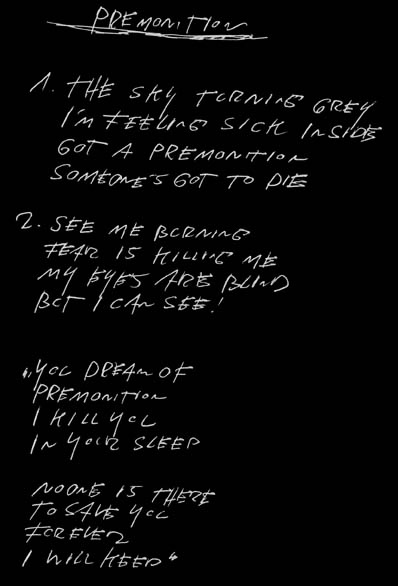 PREMONITION
1. THE SKY TURNING GREY
I'M FEELING SICK INSIDE
GOT A PREMONITION
SOMEONE'S GOT TO DIE
2. SEE ME BURNING
FEAR IS KILLING ME
MY EYES ARE BLIND
BUT I CAN SEE!
"YOU DREAM OF
PREMONITION
I KILL YOU
IN YOUR SLEEP
NOONE IS THERE
TO SAVE YOU
FOREVER
I WILL KEEP"